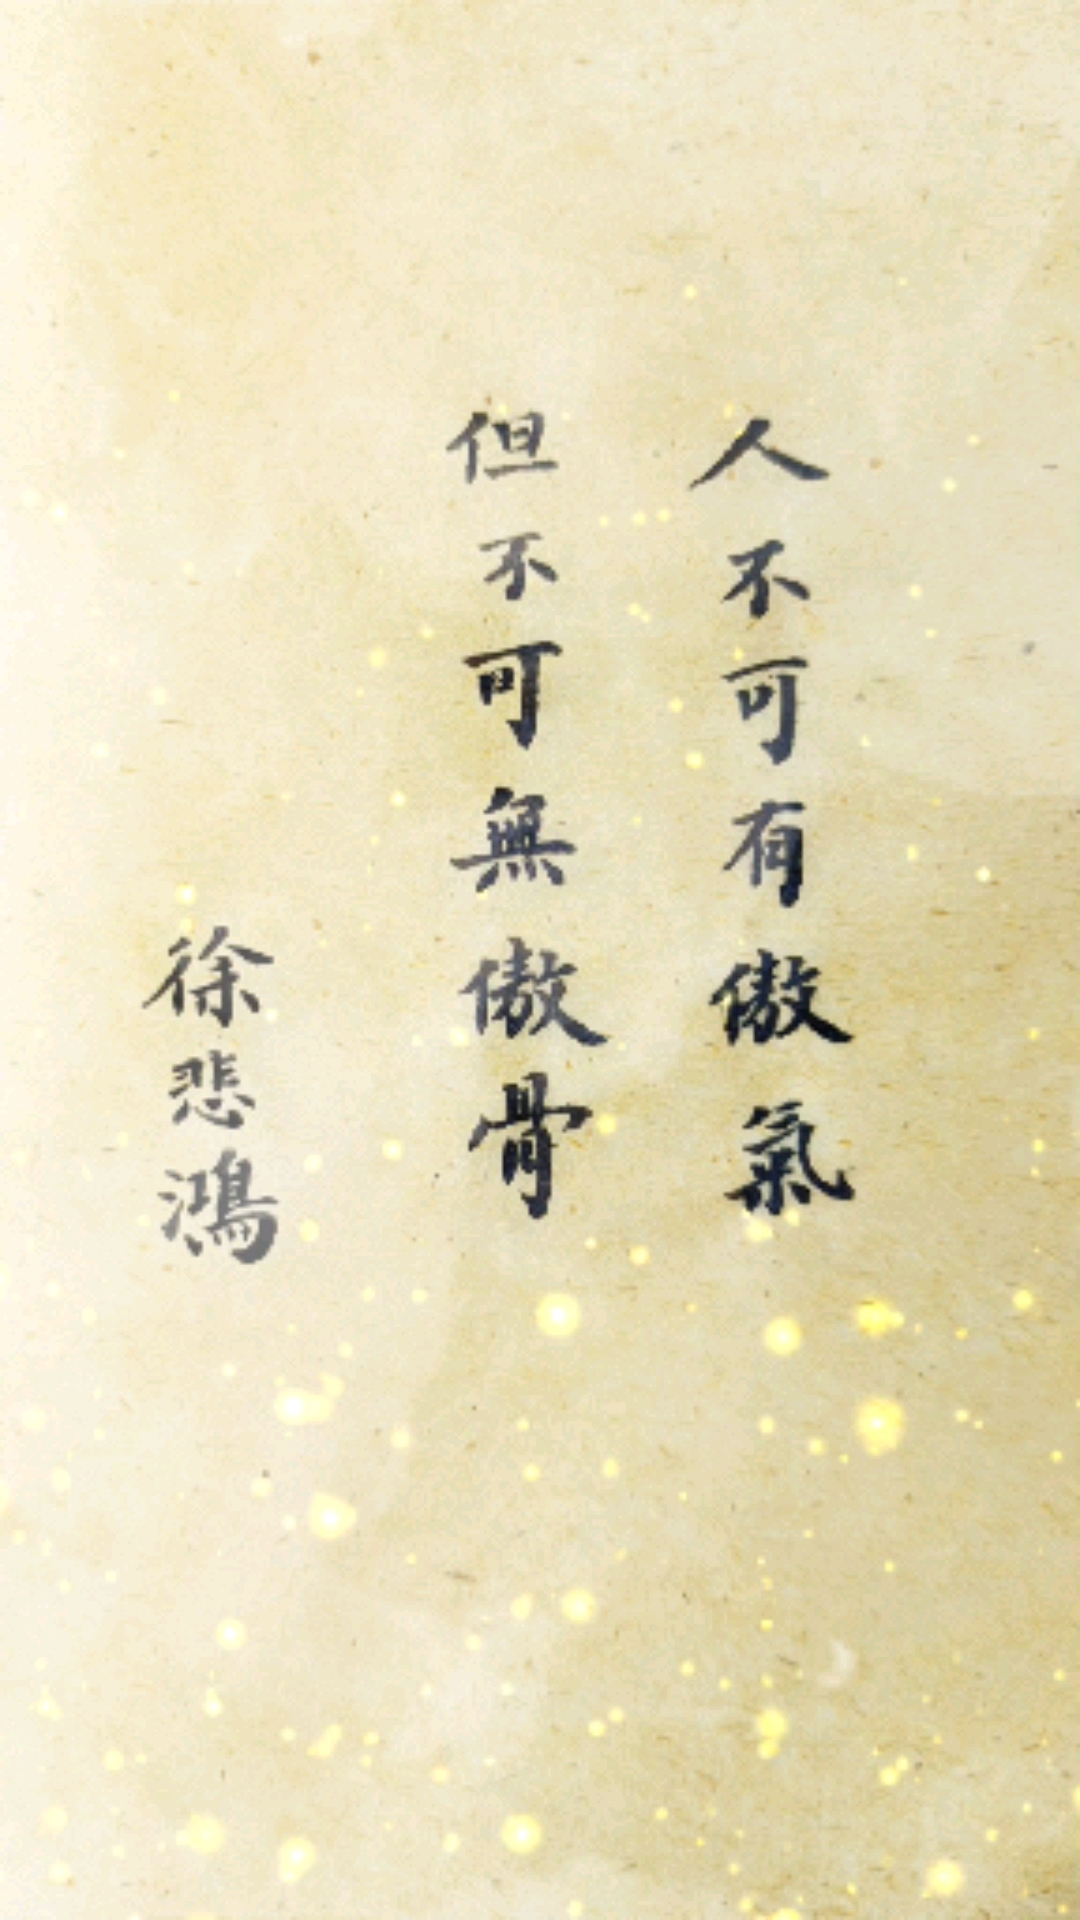 人不可有傲氣
但不可無傲骨
徐悲鴻